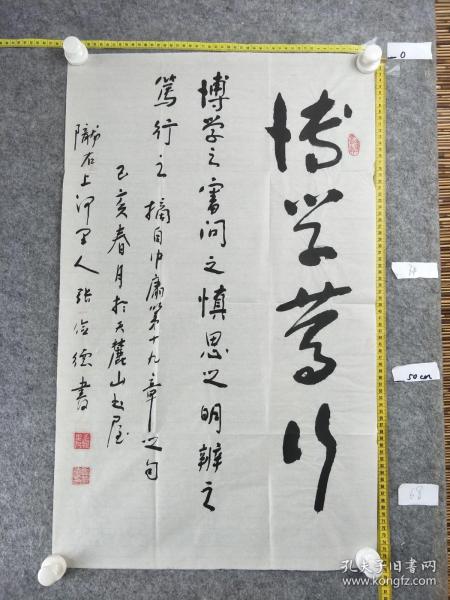 博学笃行
博学之审问之慎思之明辨之
笃行之 摘自中庸第十九章之句
己亥春月於天麓山书屋
陇右上河里人张俭德书
0
50cm
68
孔夫子旧书网
www.kongfz.com